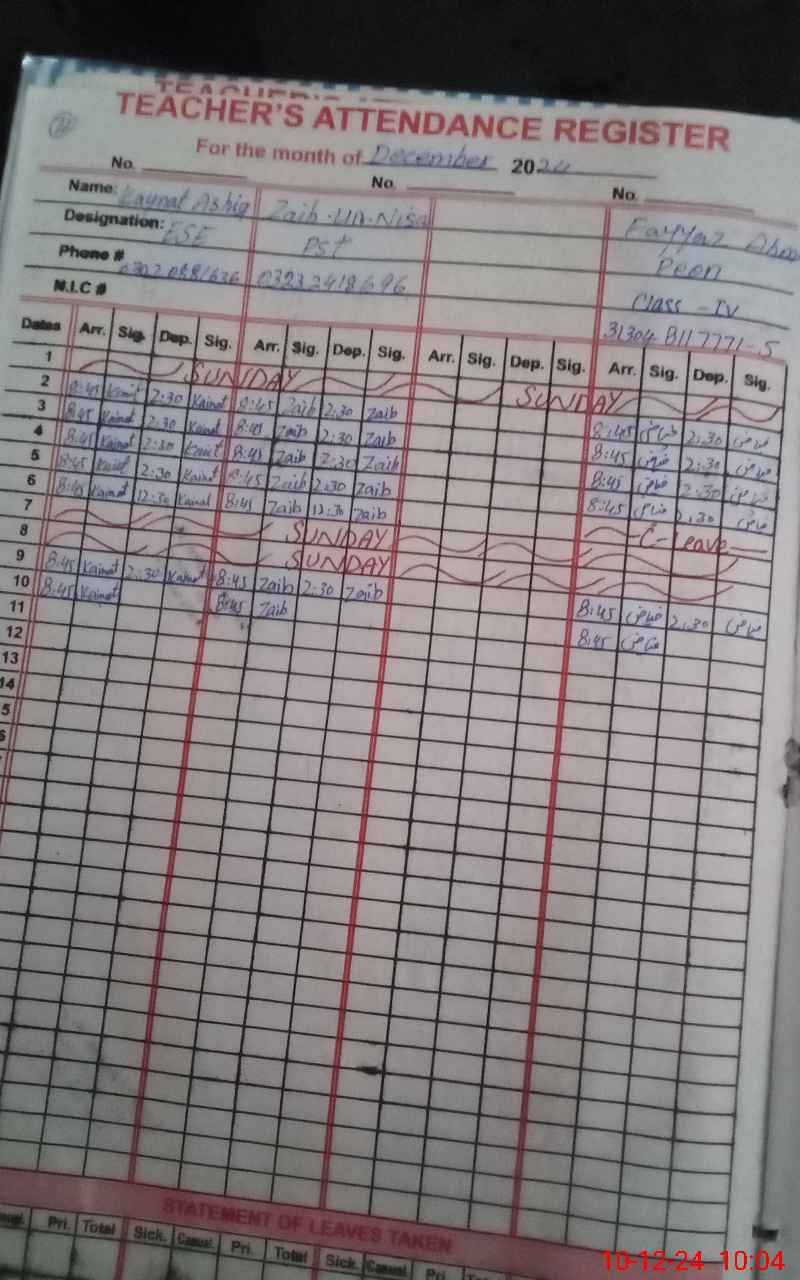 TEACHER'S
TEACHER'S ATTENDANCE REGISTER
For the month of December 2024
No. No. No.
Name: Kaynat Ashiq Zaib-un-Nisa Fayyaz
Designation: ESE PST Peon
Phone # 03232418696 Class -IV
N.I.C # 31304 8117771-5
Dates Arr. Sig. Dep. Sig. Arr. Sig. Dep. Sig. Arr. Sig. Dep. Sig. Arr. Sig. Dep. Sig.
1 SUNDAY SUNDAY
2 8:45 Kainat 2:30 Kainat 8:45 Zaib 2:30 Zaib 8:45 فیاض 2:30 فیاض
3 8:45 Kainat 2:30 Kainat 8:45 Zaib 2:30 Zaib 8:45 فیاض 2:30 فیاض
4 8:45 Kainat 2:30 Kainat 8:45 Zaib 2:30 Zaib 8:45 فیاض 2:30 فیاض
5 8:45 Kainat 2:30 Kainat 8:45 Zaib 2:30 Zaib 8:45 فیاض 2:30 فیاض
6 8:45 Kainat 12:30 Kainat 8:45 Zaib 12:30 Zaib C-Leave
7 SUNDAY
8 SUNDAY
9 8:45 Kainat 2:30 Kainat 8:45 Zaib 2:30 Zaib 8:45 فیاض 2:30 فیاض
10 8:45 Kainat 8:45 Zaib 8:45 فیاض
11
12
13
14
5
STATEMENT OF LEAVES TAKEN
Pri. Total Sick. Casual. Pri. Total Sick. Casual. Pri.
10-12-24 10:04